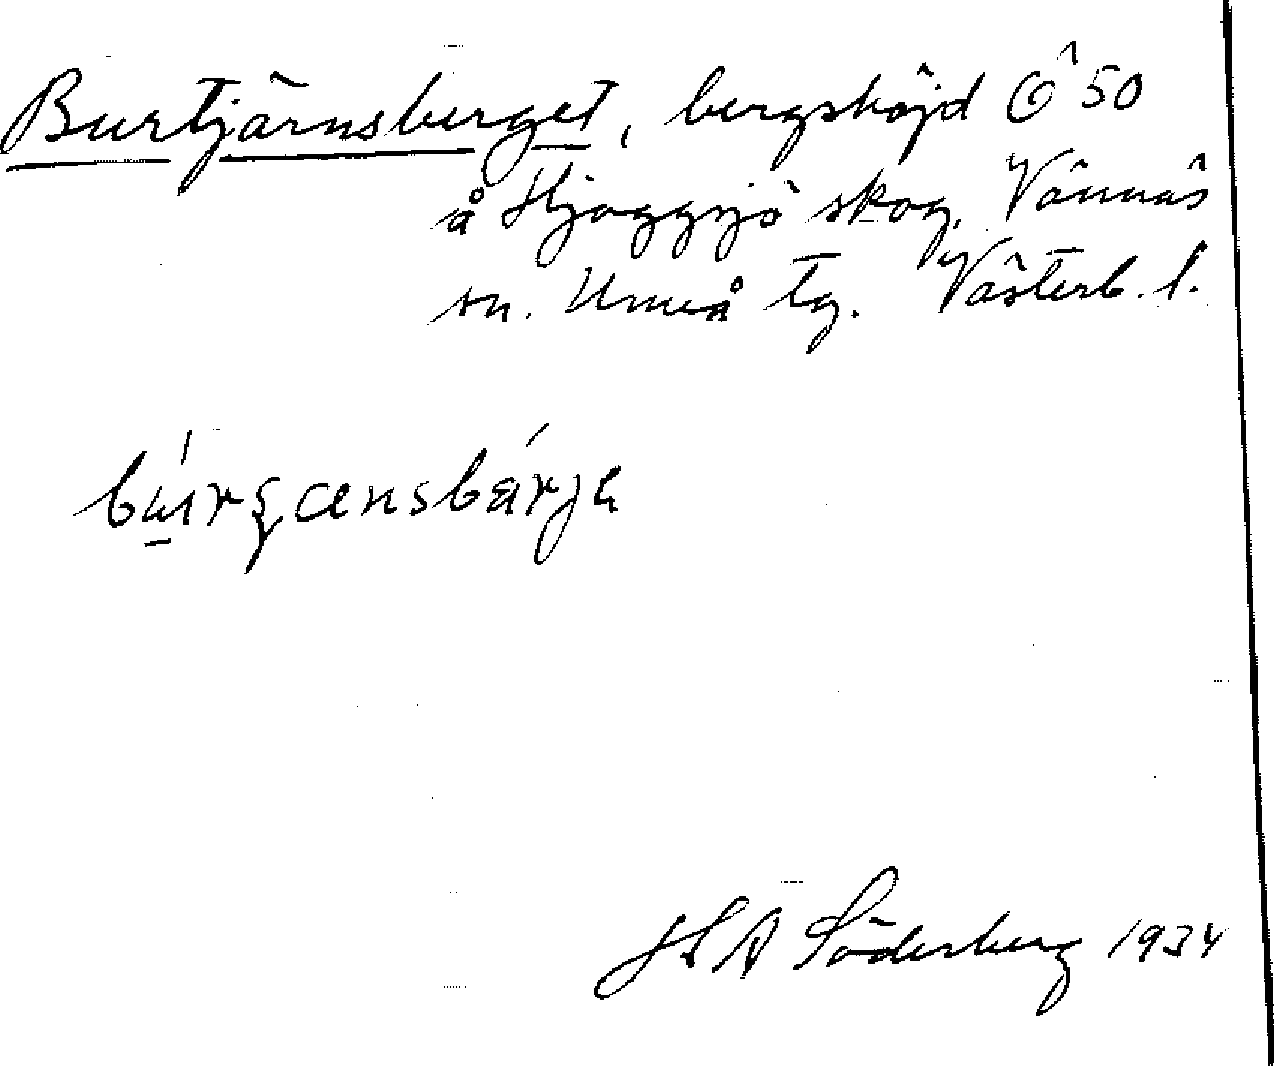 Burtjärnsberget, bergshöjd Ö 50
å Hjoggsjö skog, Vännäs
sn. Umeå tg. Västerb. l.
H A Söderberg 1934